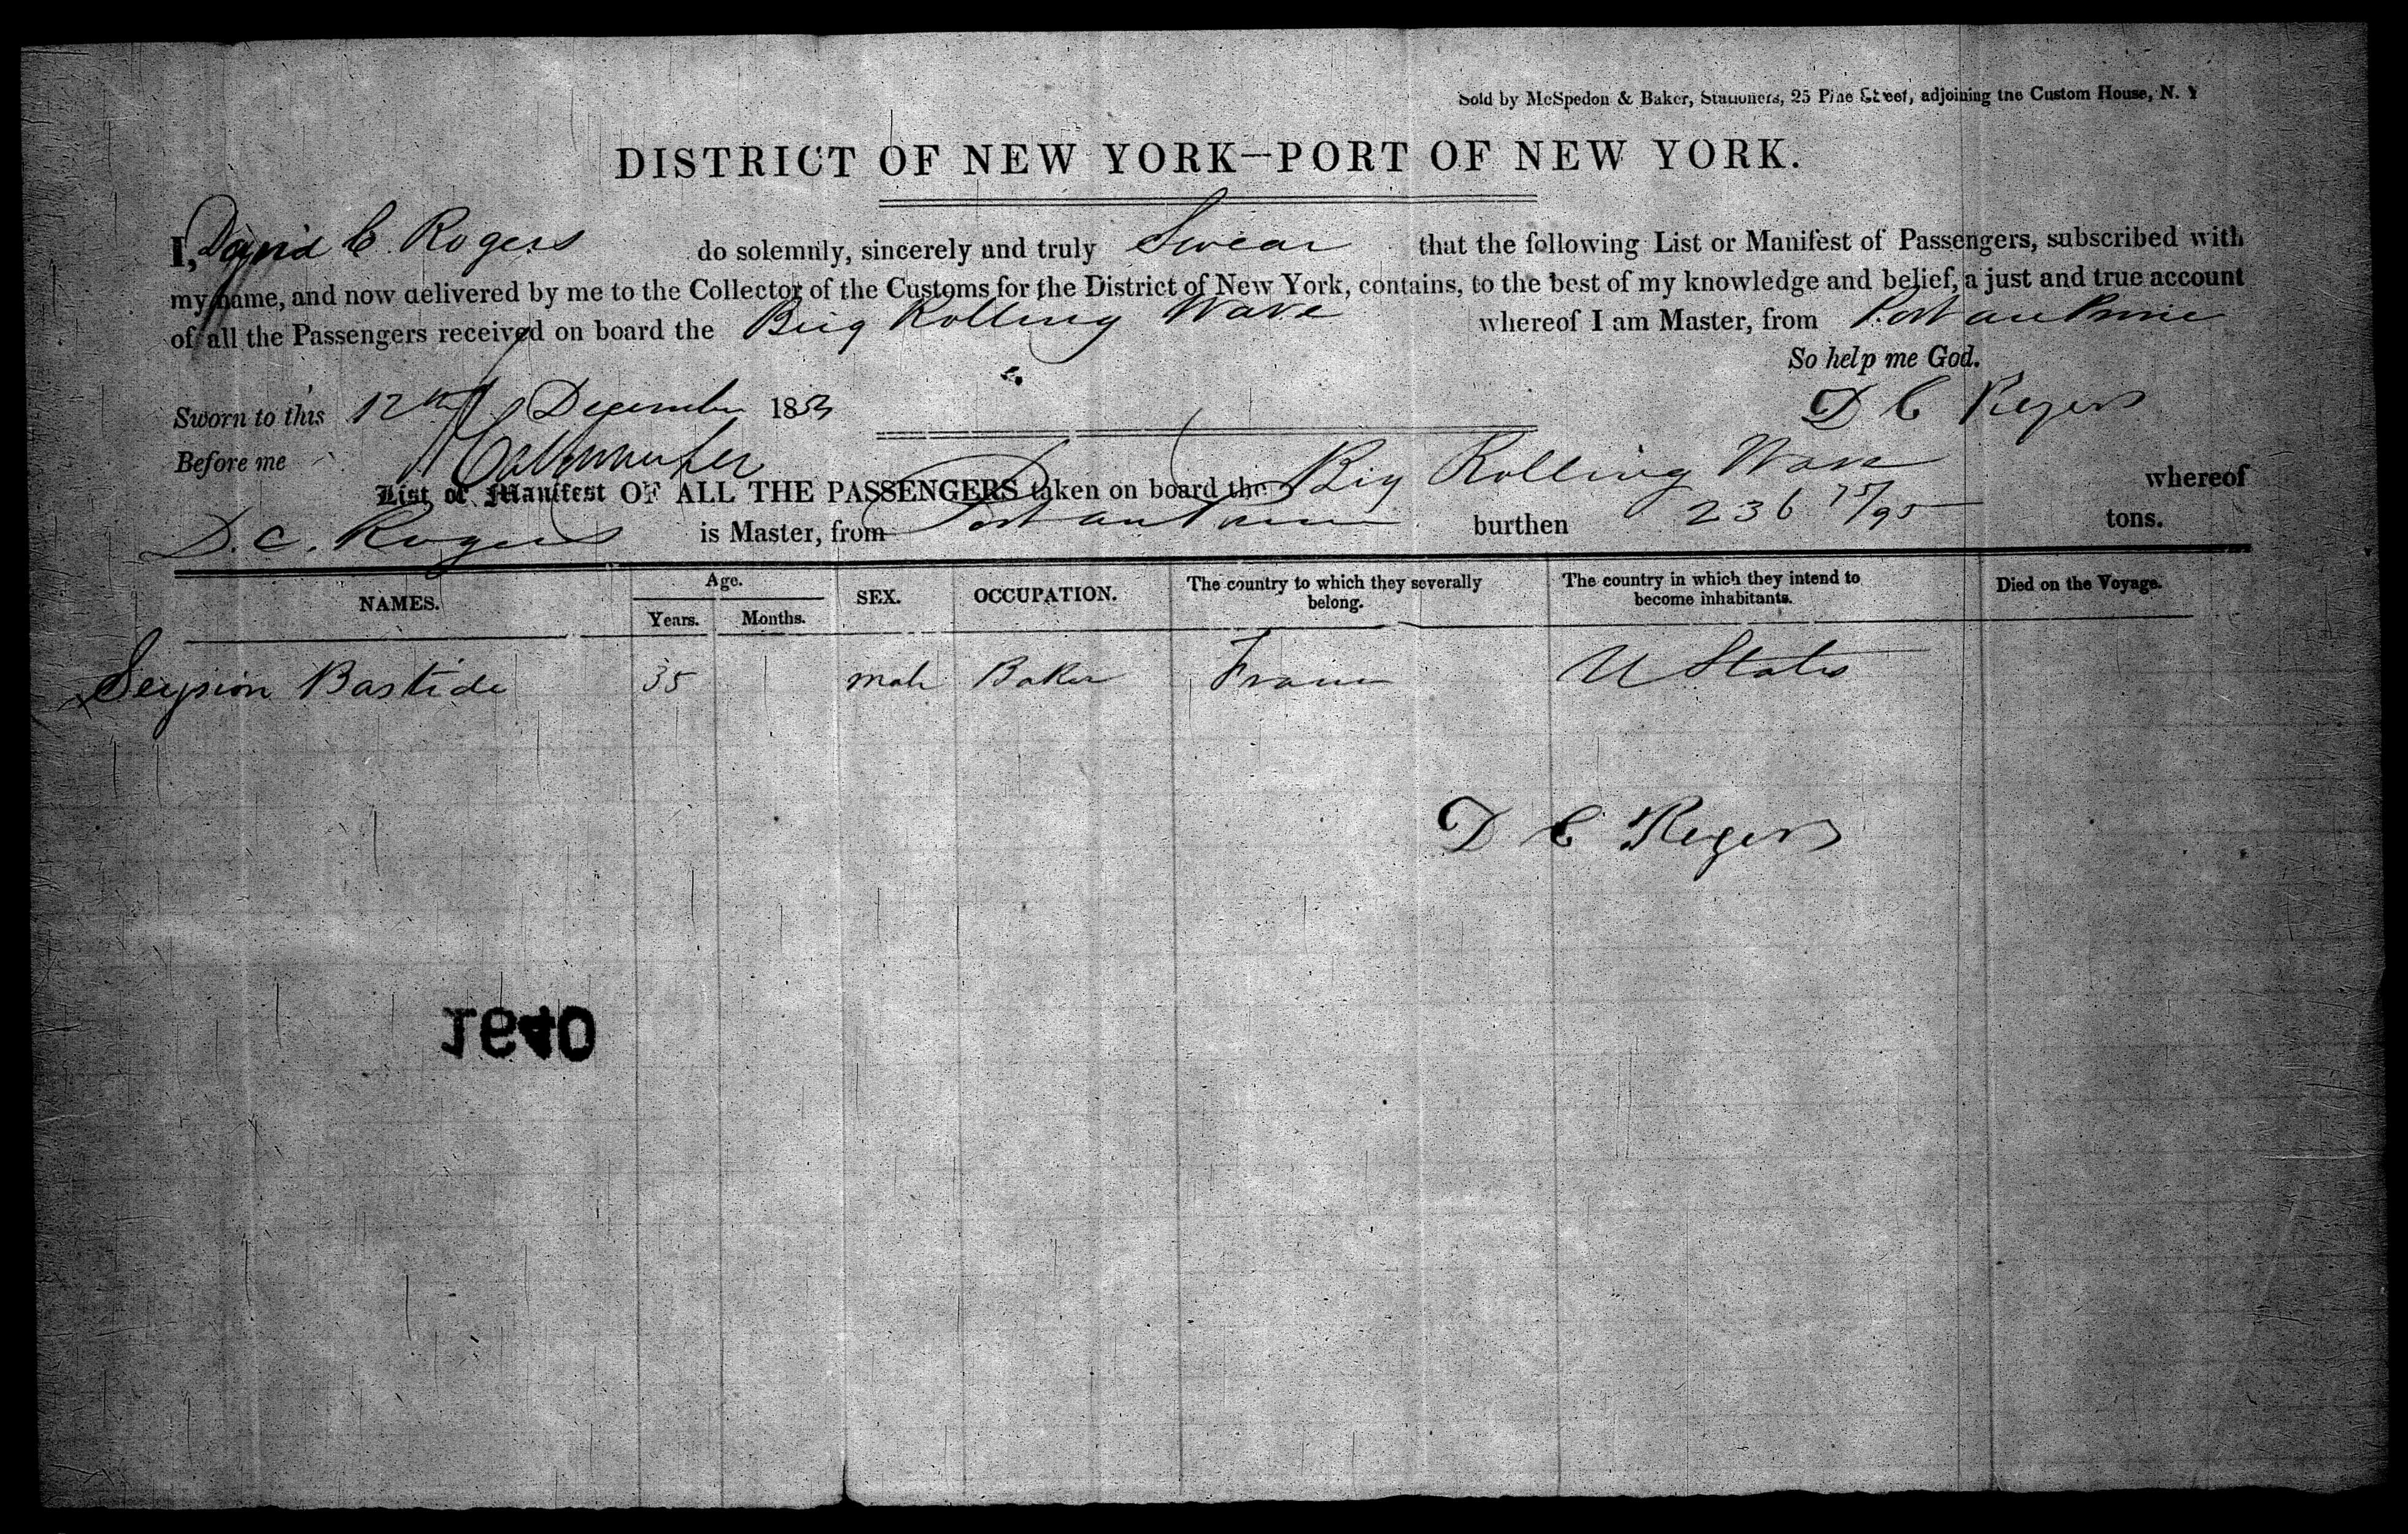 Sold by McSpedon & Baker, Stationers, 25 Pine Street, adjoining the Custom House, N. Y
DISTRICT OF NEW YORK—PORT OF NEW YORK.
I, David C. Rogers do solemnly, sincerely and truly Swear that the following List or Manifest of Passengers, subscribed with
my name, and now delivered by me to the Collector of the Customs for the District of New York, contains, to the best of my knowledge and belief, a just and true account
of all the Passengers received on board the Brig Rolling Wave whereof I am Master, from Port au Prince
So help me God.
Sworn to this 12th December 185
D C Rogers
Before me
List or Manifest OF ALL THE PASSENGERS taken on board the Brig Rolling Wave whereof
D. C. Rogers is Master, from Port au Prince burthen 236 75/95 tons.
NAMES. Age. Years. Months. SEX. OCCUPATION. The country to which they severally belong. The country in which they intend to become inhabitants. Died on the Voyage.
Bastide 35 male Baker France U States
D C Rogers